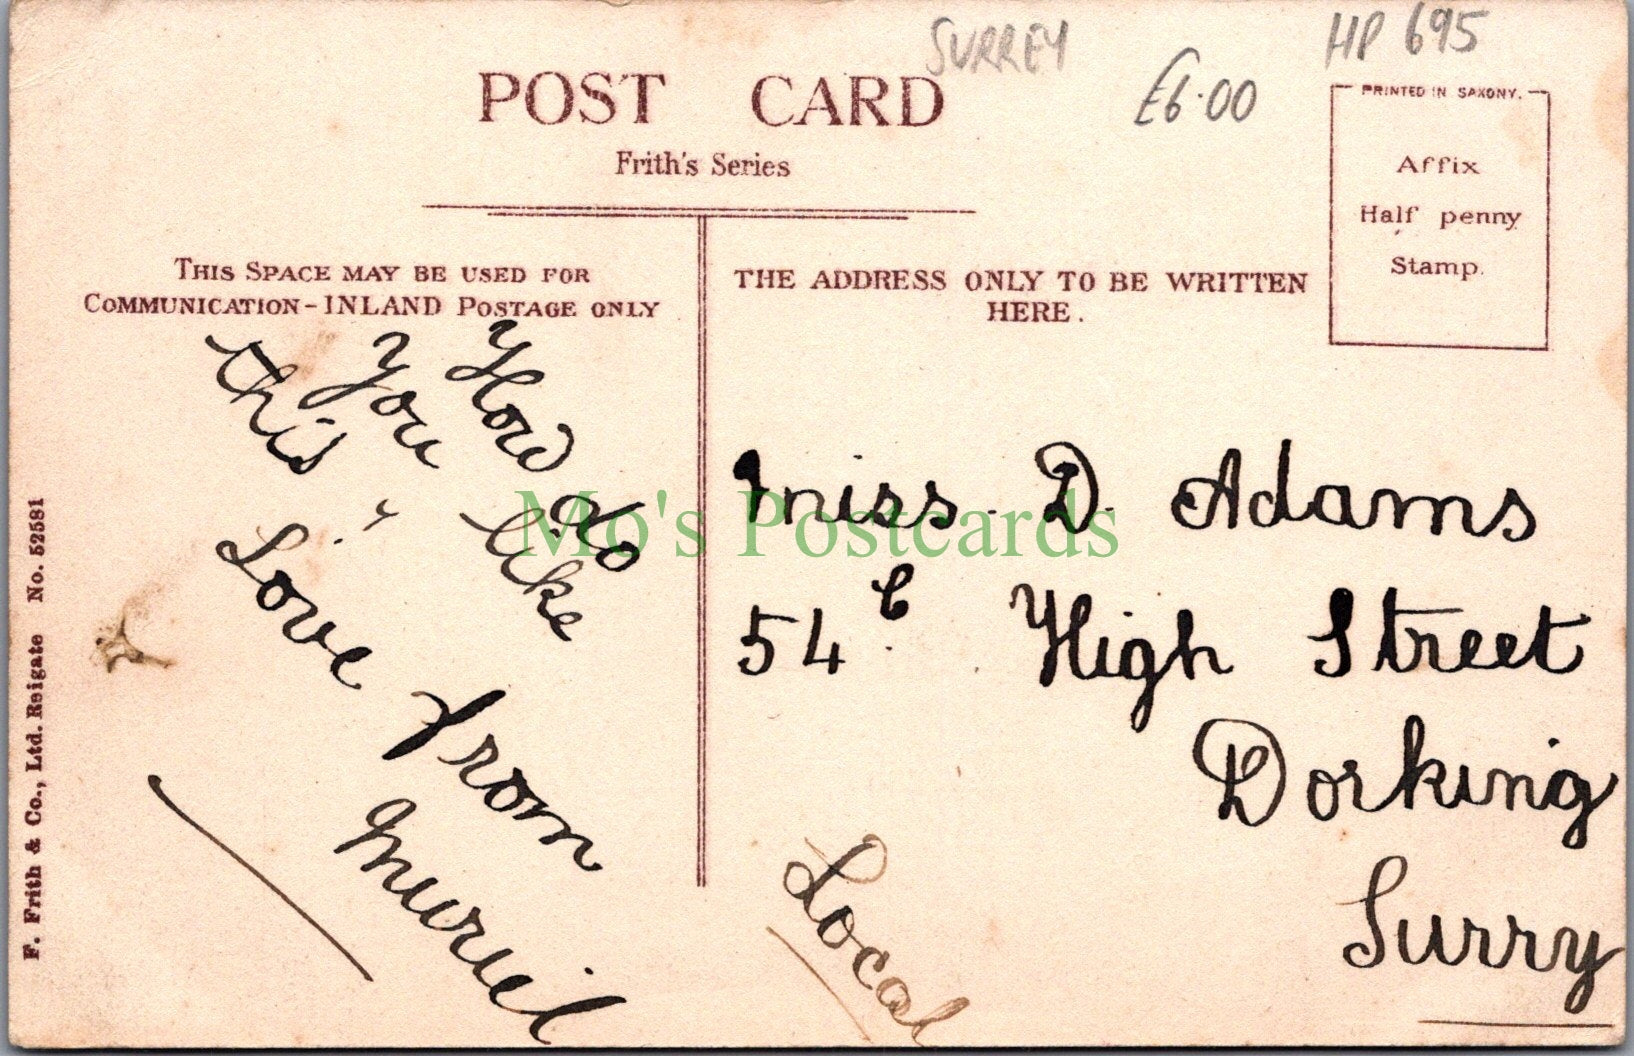 SURREY
£6.00
HP 695
POST CARD
Frith's Series
PRINTED IN SAXONY.
Affix
Half penny
Stamp.
THIS SPACE MAY BE USED FOR
COMMUNICATION-INLAND POSTAGE ONLY
THE ADDRESS ONLY TO BE WRITTEN
HERE.
How do
you like
this,
Love from
Muriel
Miss. D. Adams
54c. High Street
Dorking
Surry
Local
F. Frith & Co., Ltd. Reigate No. 52581
Mo's Postcards